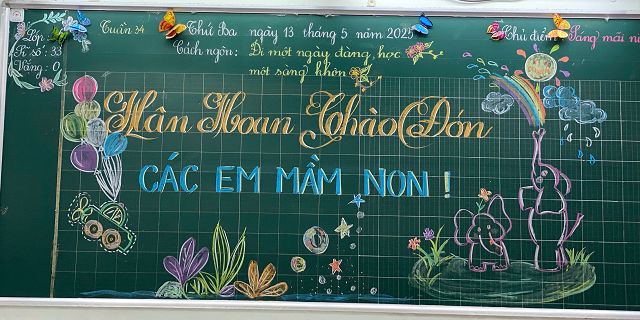 Tuần 34 Thứ Ba ngày 13 tháng 5 năm 2025
Lớp
Cách ngôn: Đi một ngày đàng học
một sàng khôn
Chủ điểm: Sáng mãi
Sĩ số: 33
Vắng: 0
Hân Hoan Chào Đón
CÁC EM MẦM NON !